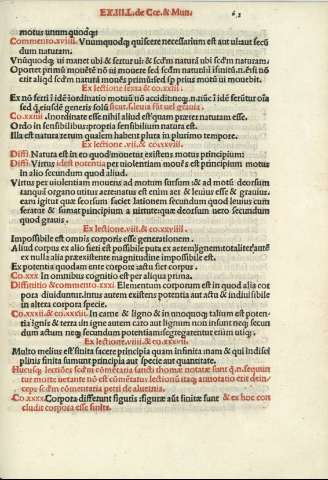 EX.III.L. de Cœ. & Mun. 63
motus unum quodq;
Commento.xviii. Vnumquodq; qui scere necessarium est aut ut aut secū
dum naturam.
Vnūquodq; ui manet ubi & fertur ui: & scd'm naturā ubi scd'm naturam.
Oportet primū mouētē nō ui mouere sed scd'm
erit aliqd quod mouēs primū: sed ip primū motū ui mouebit.
Ex lectione sexta & co.xxiii.
Ex nō ferri ī idē īordinatio motuū nō accidit
sa sed q eiusdē generis solū sicut
Co.xxiii. Inordinate esse nihil aliud est quam præter naturam esse.
Ordo in sensibilibus: propria sensibilium natura est.
Illa est natura rerum qualem habent plura in plurimo tempore.
Ex lectione .vii. & co.xxviii.
Diffi. Natura est in eo quod mouetur existens motus principium:
Diffi. Virtus idest potentia per uiolentiam mouēs est principium motus
in alio secundum quod aliud.
Virtus per uiolentiam mouens ad motum sursum & ad motū deorsum
tanquā organo utitur aere natus est enim aer & leuius esse & grauius.
earū igitur quæ seorsum faciet lationem secundum quod leuius cum
feratur & sumat principium a uirtute: quæ deorsum uero secundum
quod grauis.
Ex lectione .viii. & co.xxviiii.
Impossibile est omnis corporis esse generationem.
Aliud corpus ex alio fieri est possibile puta ex aere ignem totaliter autē
ex nulla alia præexistente magnitudine impossibile est.
Ex potentia quodam ente corpore actu fiet corpus.
Co.xxx. In omnibus cognitio est per aliqua prima.
Diffinitio & commento.xxxi. Elementum corporum est in quod alia cor
pora diuiduntur. inxus autem existens potentia aut actu & indiuisibile
in altera corpora specie.
Co.xxxii. & co.xxxiii. In carne & ligno & in unoquoq; talium est poten
tia ignis & terra in igne autem caro aut lignum non insunt neq; secun
dum actum neq; secundum potentiam: segregarentur etiam utiq;.
Ex lectione .viiii. & co.xxxvii.
Multo melius est finita facere principia quam infinita. nam & qui indesi
plinis sunt a sumunt principia aut specie aut quantitate.
Hucusq; lectiōes scd'm cōmētaria sancti thomæ notatæ sunt q.n. sequun
tur morte uetante nō est cōmētatus: lectionū itaq; annotatio erit dein
ceps scd'm cōmentaria petri de aluernia.
Co.xxxx. Corpora differunt figuris: figuræ aūt finitæ sunt & ex hoc con
cludit corpora esse finita.